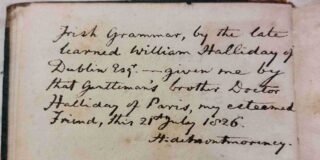 Irish Grammar, by the late
learned William Halliday of
Dublin Esqr. — given me by
that Gentleman's brother Doctor
Halliday of Paris, my esteemed
Friend, this 21st July 1826.
H. de Montmorency.